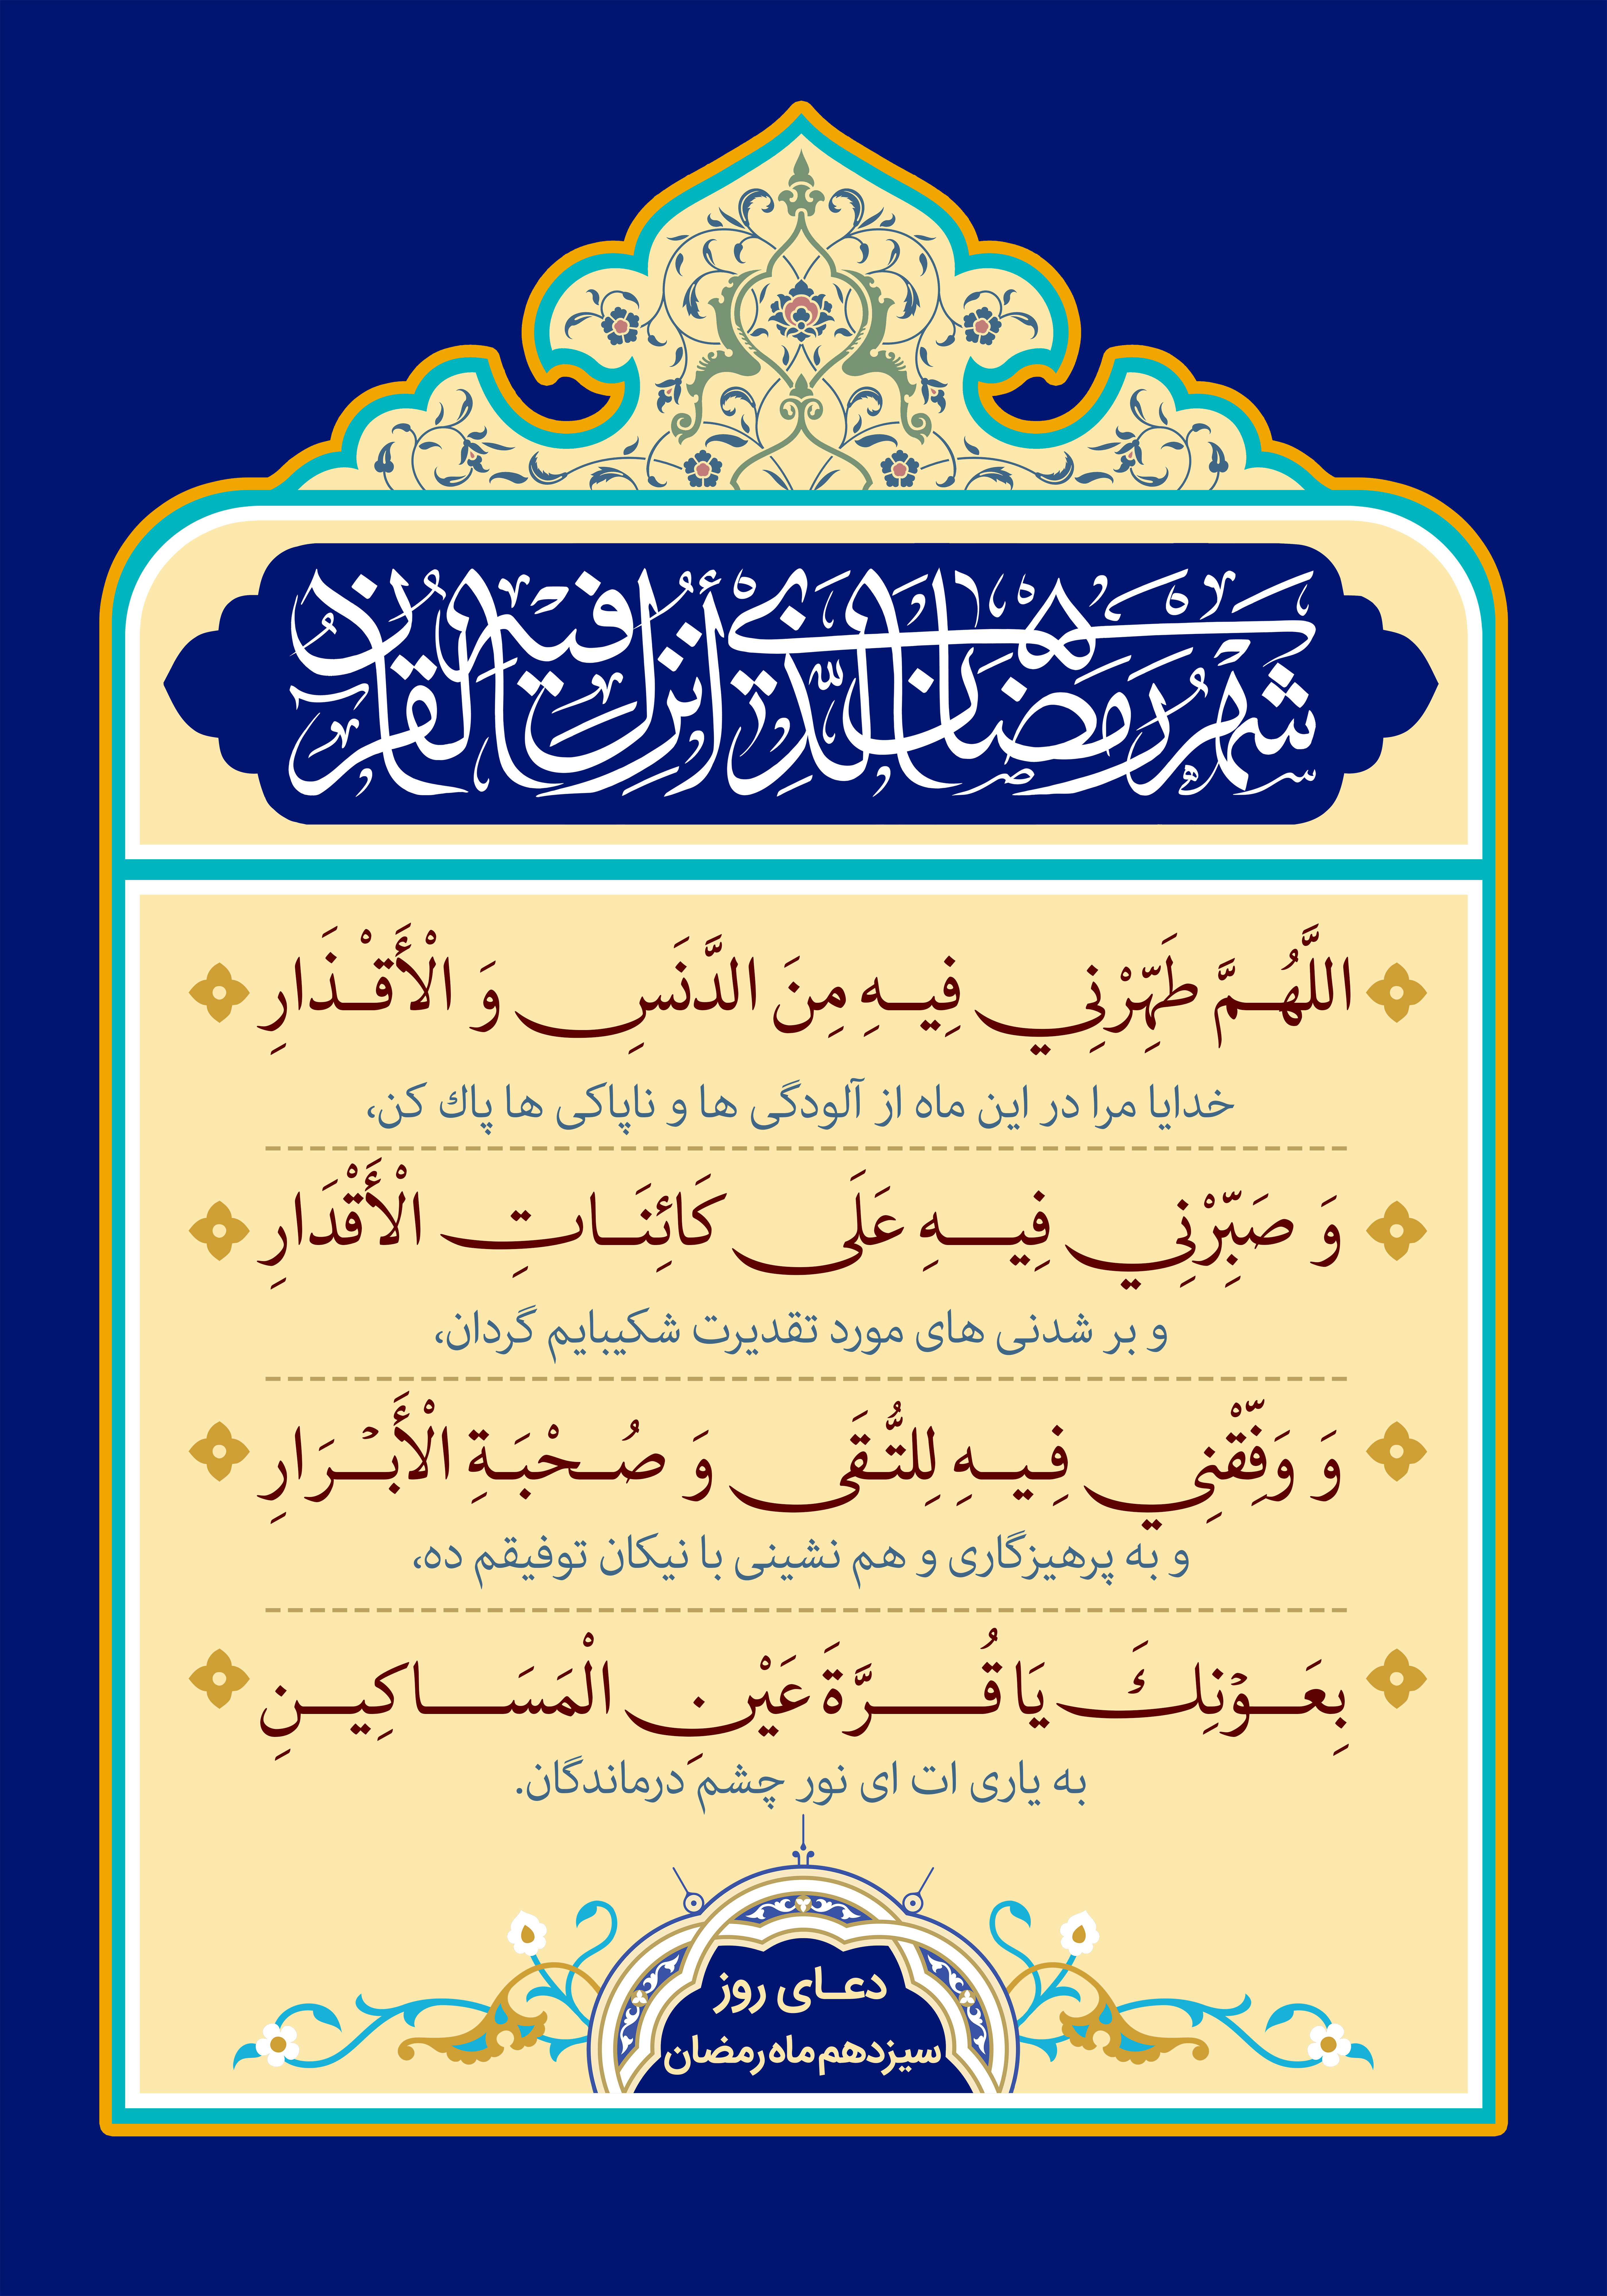 شَهْرُ رَمَضَانَ الَّذِي أُنْزِلَ فِيهِ الْقُرْآنُ
اللَّهُمَّ طَهِّرْنِي فِيهِ مِنَ الدَّنَسِ وَ الْأَقْذَارِ
خدایا مرا در این ماه از آلودگی ها و ناپاکی ها پاك کن،
وَ صَبِّرْنِي فِيهِ عَلَى كَائِنَاتِ الْأَقْدَارِ
و بر شدنی های مورد تقدیرت شکیبایم گردان،
وَ وَفِّقْنِي فِيهِ لِلتُّقَى وَ صُحْبَةِ الْأَبْرَارِ
و به پرهیزگاری و هم نشینی با نیکان توفیقم ده،
بِعَوْنِكَ يَا قُرَّةَ عَيْنِ الْمَسَاكِينِ
به یاری ات ای نور چشم درماندگان.
دعای روز
سیزدهم ماه رمضان